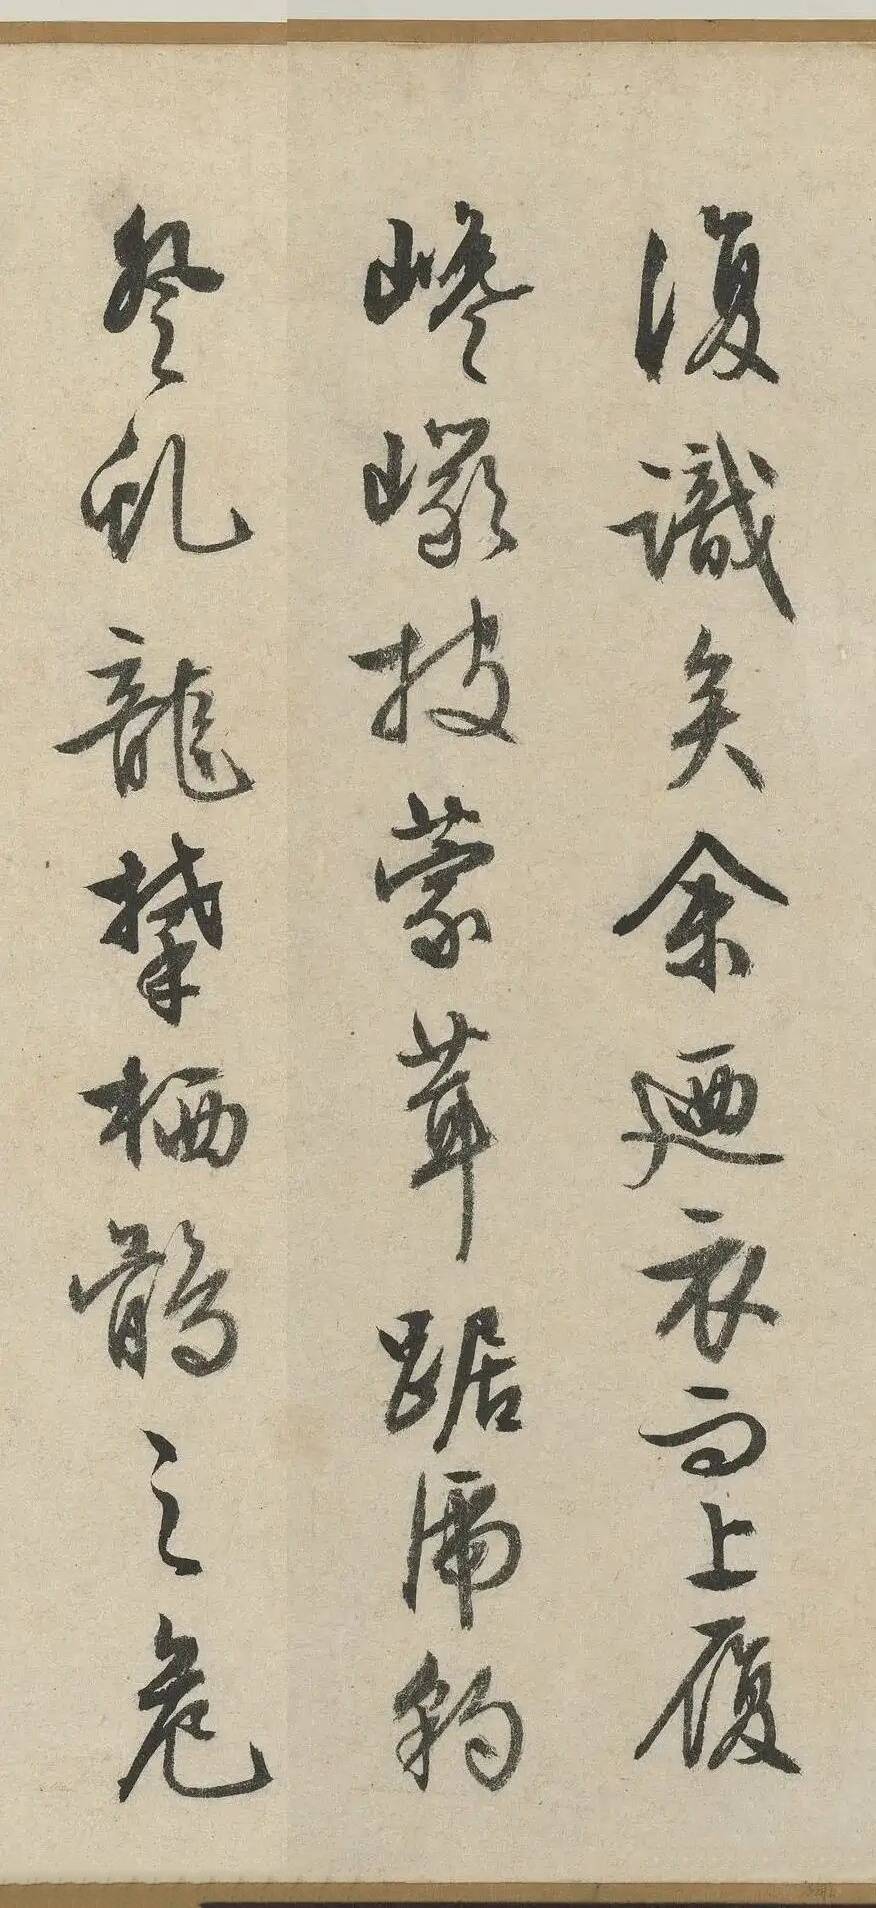 復識矣余迺衣而上履
巉巖披蒙茸踞虎豹
登虬龍攀栖鶻之危